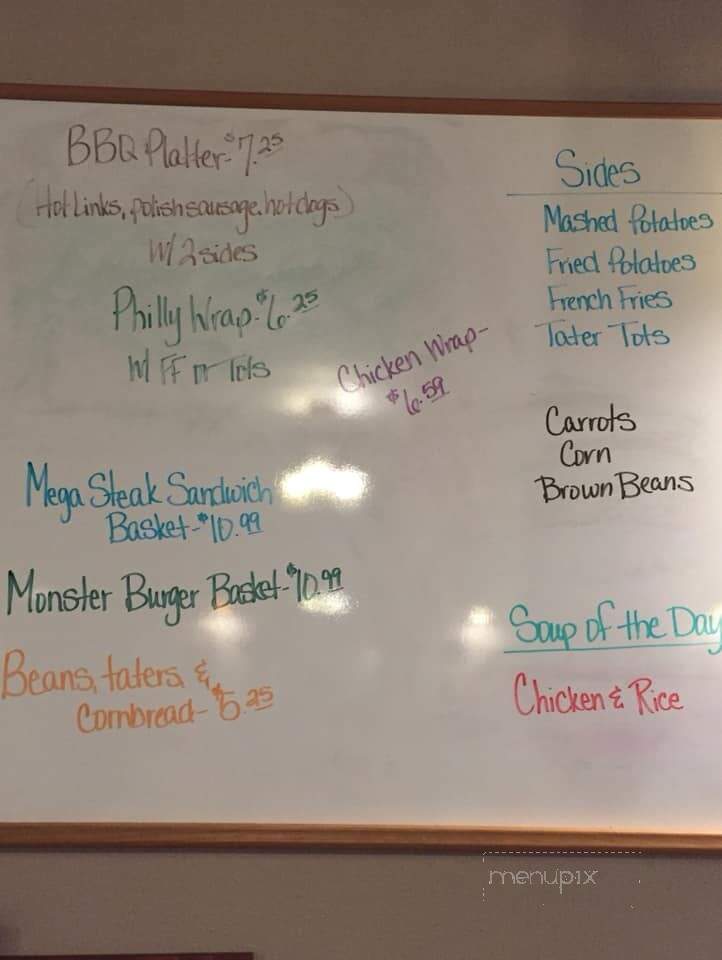 BBQ Platter-$7.25
(Hot Links, polish sausage, hotdogs)
W/ 2 sides
Philly Wrap-$6.25
W/ FF or Tots
Chicken Wrap-
$6.59
Mega Steak Sandwich
Basket-$10.99
Monster Burger Basket-$10.99
Beans, taters, &
Cornbread-$5.25
Sides
Mashed Potatoes
Fried Potatoes
French Fries
Tater Tots
Carrots
Corn
Brown Beans
Soup of the Day
Chicken & Rice
menupix